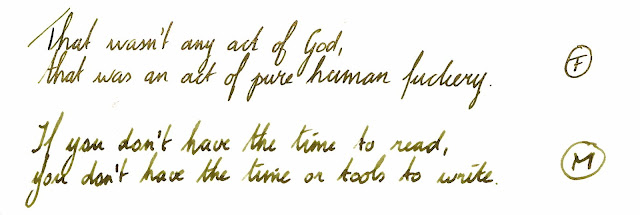 That wasn't any act of God,
that was an act of pure human fuckery.
F
If you don't have the time to read,
you don't have the time or tools to write.
M